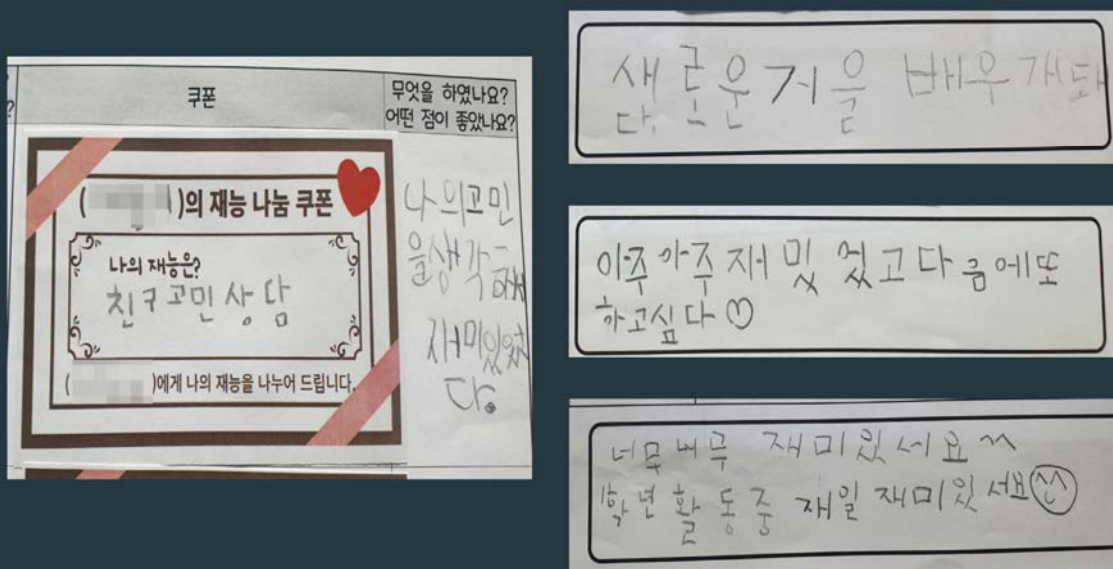 쿠폰
무엇을 하였나요?
어떤 점이 좋았나요?
( )의 재능 나눔 쿠폰
나의 재능은?
친구고민상담
( )에게 나의 재능을 나누어 드립니다.
나의고민
을생각
해서
재미있었
다.
새로운거을 배우개돼
다.
아주아주재밌엏고다음에또
하고십다♡
너무너무 재미있서요^^
1학년활동중 재일재미있서요